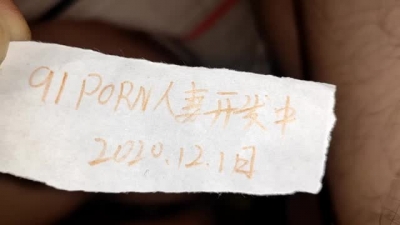 91PORN人妻开发中
2020.12.1日